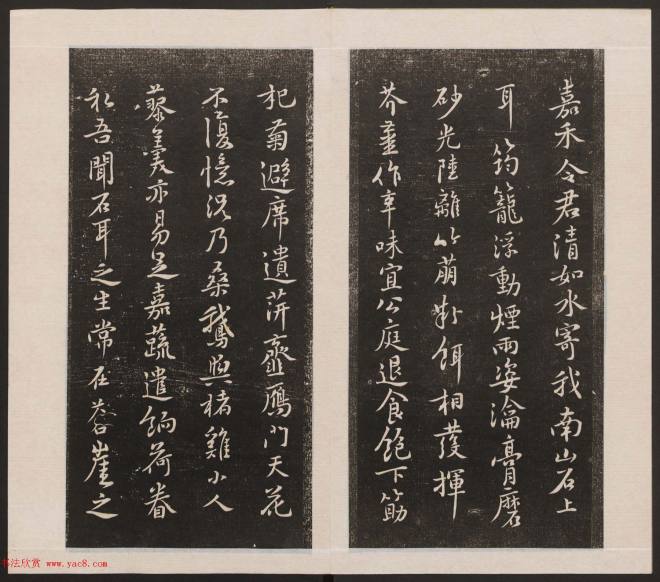 嘉禾令君清如水寄我南山石上
耳筠籠浮動煙雨姿瀹膏磨
砂光陸離竹萌粉餌相發揮
芥薑作辛味宜公庭退食飽下筯
杞菊避席遺蓱虀鴈門天花
不復憶況乃桑鵝與楮雞小人
藜羹亦易足嘉蔬遣餉荷眷
私吾聞石耳之生常在蒼崖之
书法欣赏 www.yac8.com